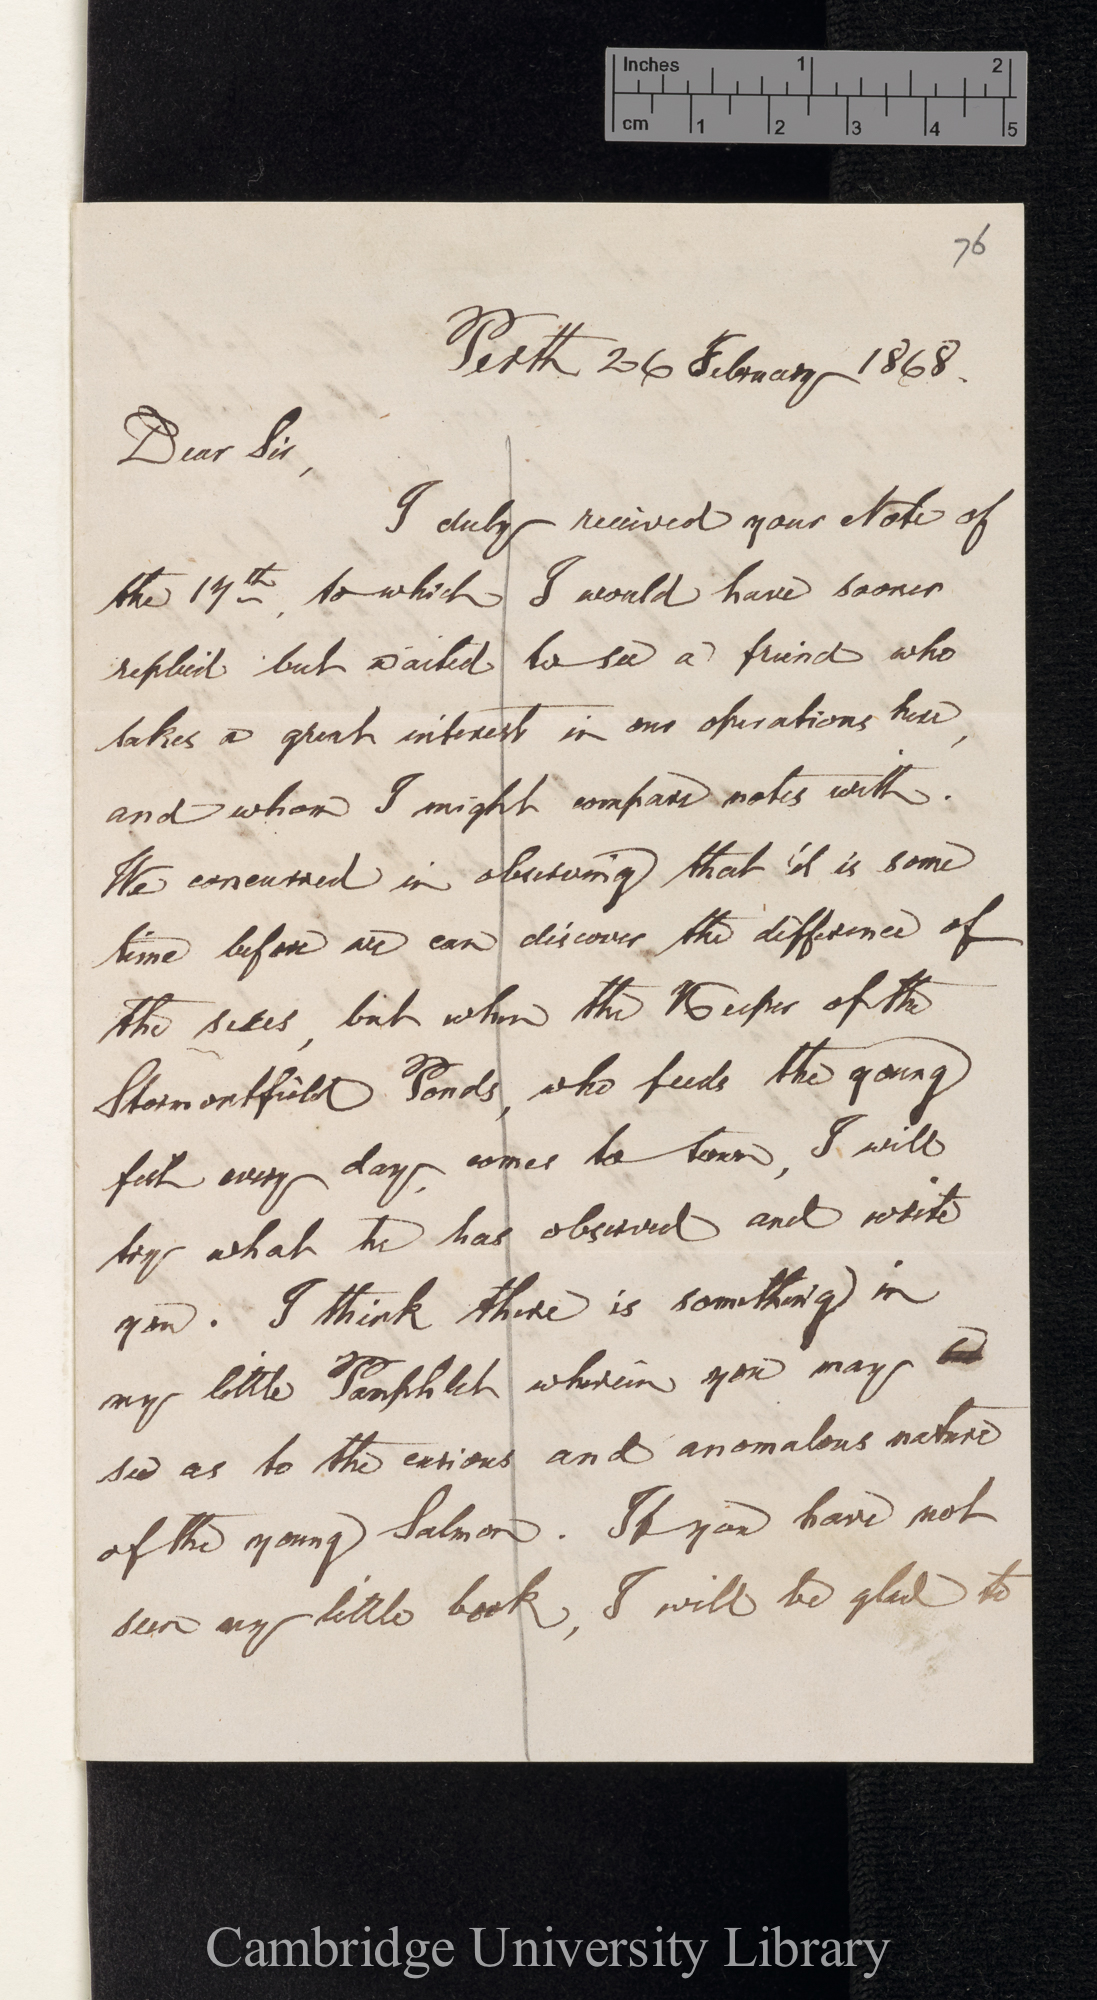 Inches 1 2
cm 1 2 3 4 5
76
Perth 26 February 1868.
Dear Sir,
I duly received your Note of
the 17th, to which I would have sooner
replied but waited to see a friend who
takes a great interest in our operations here,
and whom I might compare notes with.
We concurred in observing that it is some
time before we can discover the difference of
the sexes, but when the Keeper of the
Stormontfield Ponds, who feeds the young
fish every day, comes to town, I will
try what he has observed and write
you. I think there is something in
my little Pamphlet wherein you may
see as to the curious and anomalous nature
of the young Salmon. If you have not
seen my little book, I will be glad to
Cambridge University Library